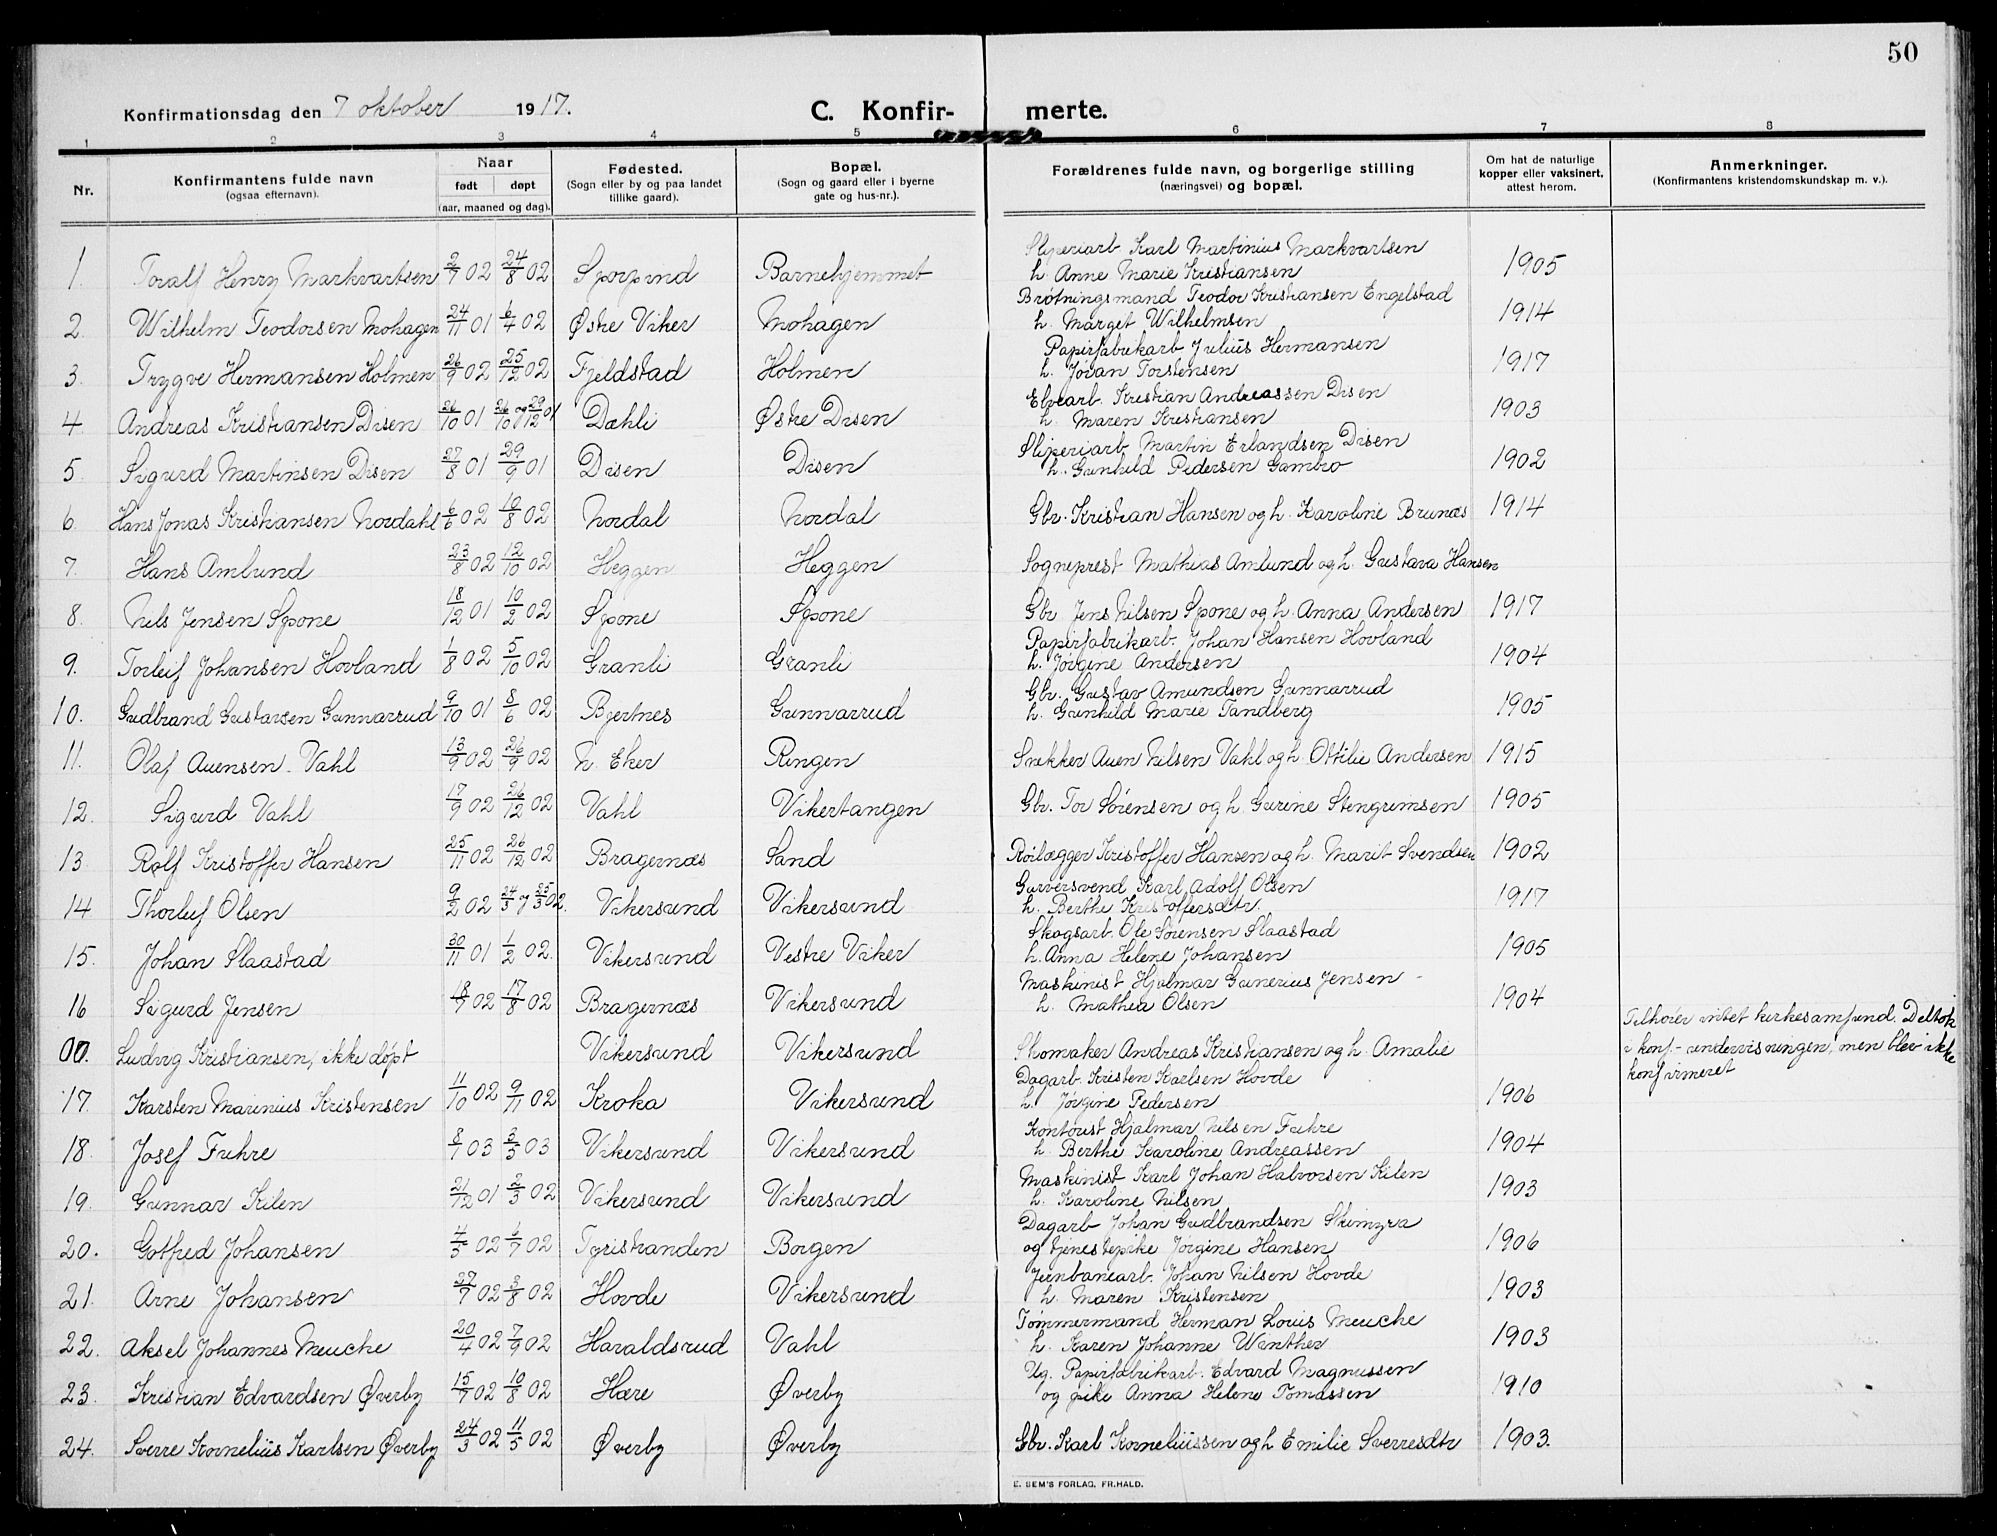 50
Konfirmationsdag den 7 oktober 1917.
C. Konfir- merte.
1 2 3 4 5 6 7 8
Nr.
Konfirmantens fulde navn
(ogsaa efternavn).
Naar
født døpt
(aar, maaned og dag).
Fødested.
(Sogn eller by og paa landet
tillike gaard).
Bopæl.
(Sogn og gaard eller i byerne
gate og hus-nr.).
Forældrenes fulde navn, og borgerlige stilling
(næringsvei) og bopæl.
Om hat de naturlige
kopper eller vaksinert,
attest herom.
Anmerkninger.
(Konfirmantens kristendomskundskap m. v.).
Sliperiarb. Karl Martinius Markvartsen
1 Toralf Henry Markvartsen 2/7 02 24/8 02 Barnehjemmet h. Anne Marie Kristiansen 1905
Brøtningsmand Teodor Kristiansen Engelstad
2. Wilhelm Teodorsen Mohagen 24/11 01 6/4 02 Østre Viker Mohagen h. Marget Wilhelmsen 1914
Papirfabrikarb Julius Hermansen
3. Trygve Hermansen Holmen 26/9 02 25/12 02 Fjeldstad Holmen h. Jøran Torstensen 1917
Elvearb. Kristian Andreassen Disen
4 Andreas Kristiansen Disen 26/10 01 26/10 og 29/12 01 Dæhli Østre Disen h. Maren Kristiansen 1903
Sliperiarb Martin Erlandsen Disen
5 Sigurd Martinsen Disen 27/8 01 29/9 01 Disen Disen h. Gunhild Pedersen Gambro 1902
6. Hans Jonas Kristiansen Nordahl 6/6 02 10/8 02 Nordal Nordal Gbr. Kristian Hansen og h. Karoline Brunæs 1914
7. Hans Amlund 23/8 02 12/10 02 Heggen Heggen Sogneprest Mathias Amlund og h. Gustava Hansen
8. Nils Jensen Spone 18/12 01 10/2 02 Spone Spone Gbr Jens Nilsen Spone og h. Anna Andersen 1917
Papirfabrikarb. Johan Hansen Hovland
9. Torleif Johansen Hovland 1/8 02 5/10 02 Granli Granli h. Jørgine Andersen 1904
Gbr. Gustav Amundsen Gunnarrud
10. Gudbrand Gustavsen Gunnarrud 9/10 01 8/6 02 Bjertnes Gunnarrud h. Gunhild Marie Tandberg 1905
11. Olaf Auensen Vahl 13/9 02 26/9 02 N. Eker Ringen Snekker Auen Nilsen Vahl og h Ottilie Andersen 1915
12. Sigurd Vahl 17/9 02 26/12 02 Vahl Vikertangen Gbr. Tor Sørensen og h Gurine Stengrimsen 1905
13. Rolf Kristoffer Hansen 25/11 02 26/12 02 Bragernæs Sand Rørlægger Kristoffer Hansen og h. Marit Svendsen 1902
Garversvend Karl Adolf Olsen
14 Thorleif Olsen 9/2 02 24/3 og 25/3 02. Vikersund Vikersund h. Berthe Kristoffersdtr. 1917
Skogsarb. Ole Sørensen Slaastad
15. Johan Slaastad 30/11 01 1/2 02. Vikersund Vestre Viker h. Anna Helene Johansen 1905
Maskinist Hjalmar Gunerius Jensen
16 Sigurd Jensen 18/7 02 17/8 02 Bragernæs Vikersund h. Mathea Olsen 1904
Tilhører intet kirkesamfund. Deltok
i konf.-undervisningen, men blev ikke
konfirmeret
00. Ludvig Kristiansen, ikke døpt Vikersund Vikersund Skomaker Andreas Kristiansen og h. Amalie
Dagarb. Kristen Karlsen Hovde
17. Karsten Marinius Kristensen 11/10 02 9/11 02 Kroka Vikersund h. Jørgine Pedersen 1906
Kontorist Hjalmar Nilsen Fuhre
18. Josef Fuhre 8/7 03 3/5 03 Vikersund Vikersund h. Berthe Karoline Andreassen 1904
Maskinist Karl Johan Halvorsen Kilen
19. Gunnar Kilen 21/12 01 2/3 02 Vikersund Vikersund h. Karoline Nilsen 1903
Dagarb Johan Gudbrandsen Skimyra
20. Gotfred Johansen 4/5 02 6/7 02 Tyristranden Borgen og tjenestepike Jørgine Hansen 1906
Jernbanearb. Johan Nilsen Hovde
21. Arne Johansen 27/7 02 3/8 02 Hovde Vikersund h. Maren Kristensen 1903
Tømmermand Herman Louis Meuche
22. Aksel Johannes Meuche 20/4 02 7/9 02 Haraldsrud Vahl h. Karen Johanne Winther 1903
Ug. Papirfabrikarb. Edvard Magnussen
23. Kristian Edvardsen Øverby 15/7 02 10/8 02 Hære Øverby og pike Anna Helene Tomassen 1910
24. Sverre Kornelius Karlsen Øverby 24/3 02 11/5 02 Øverby Øverby Gbr. Karl Korneliussen og h Emilie Sverresdtr 1903.
E. SEM'S FORLAG, FR.HALD.